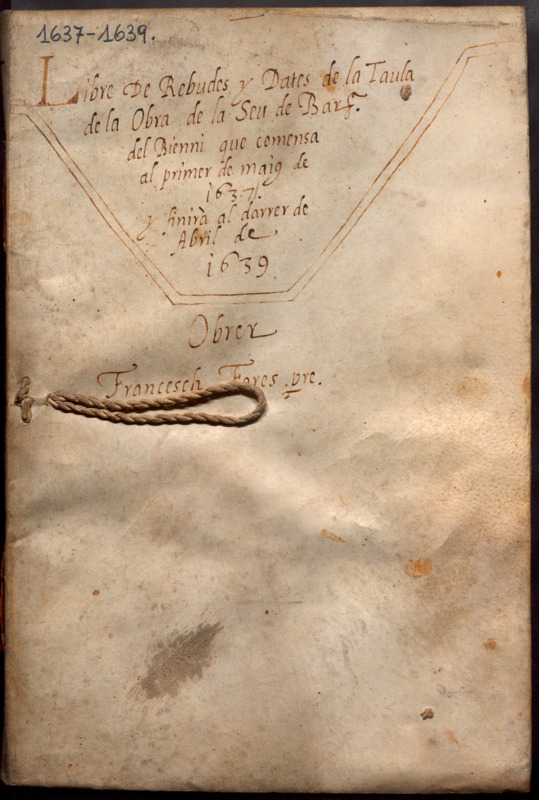 1637-1639.
Libre De Rebudes y Dates de la Taula
de la Obra de la Seu de Barᵃ.
del Bienni que comensa
al primer de maig de
1637.
y finirà al darrer de
Abril de
1639
Obrer
Francesch Fores pre.